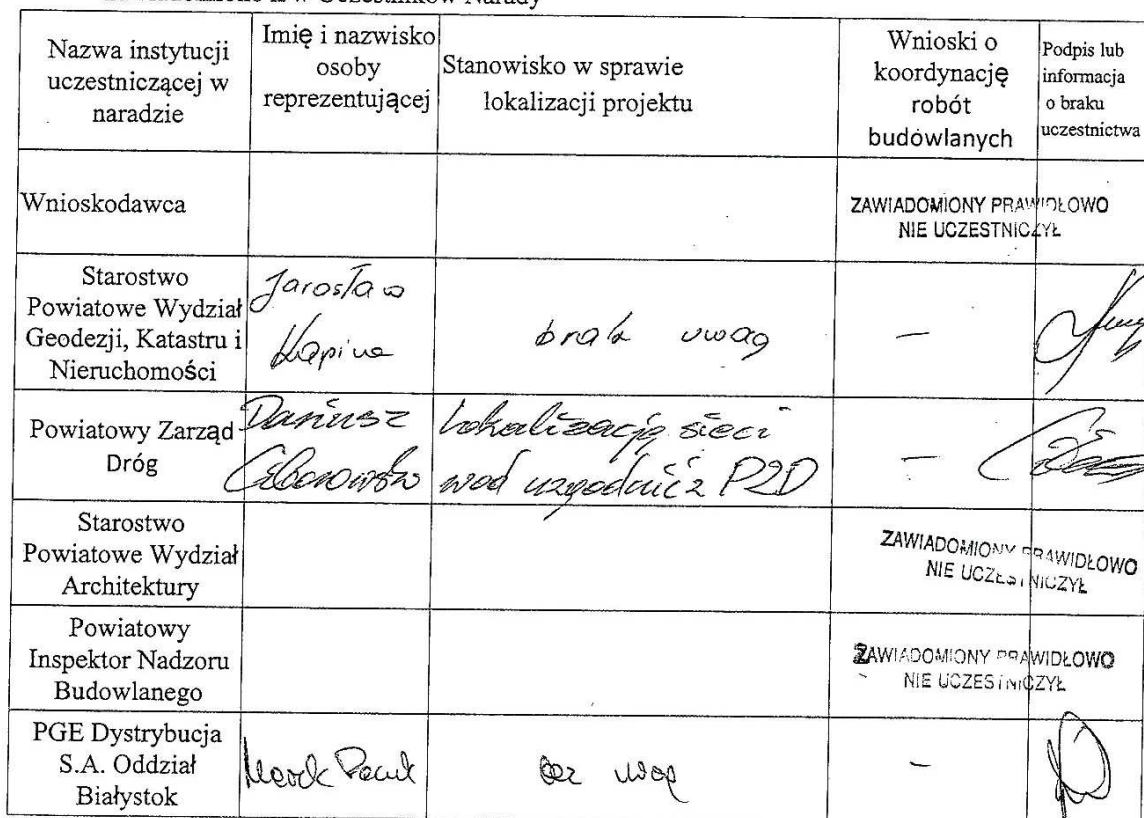 Uczestników Narady
Nazwa instytucji
uczestniczącej w
naradzie
Imię i nazwisko
osoby
reprezentującej
Stanowisko w sprawie
lokalizacji projektu
Wnioski o
koordynację
robót
budowlanych
Podpis lub
informacja
o braku
uczestnictwa
Wnioskodawca
ZAWIADOMIONY PRAWIDŁOWO
NIE UCZESTNICZYŁ
Starostwo
Powiatowe Wydział
Geodezji, Katastru i
Nieruchomości
Jarosław
brak uwag
—
Powiatowy Zarząd
Dróg
Dariusz
Lokalizację sieci
wod uzgodnić z PZD
—
Starostwo
Powiatowe Wydział
Architektury
ZAWIADOMIONY PRAWIDŁOWO
NIE UCZESTNICZYŁ
Powiatowy
Inspektor Nadzoru
Budowlanego
ZAWIADOMIONY PRAWIDŁOWO
NIE UCZESTNICZYŁ
PGE Dystrybucja
S.A. Oddział
Białystok
Marek
bez uwag
—